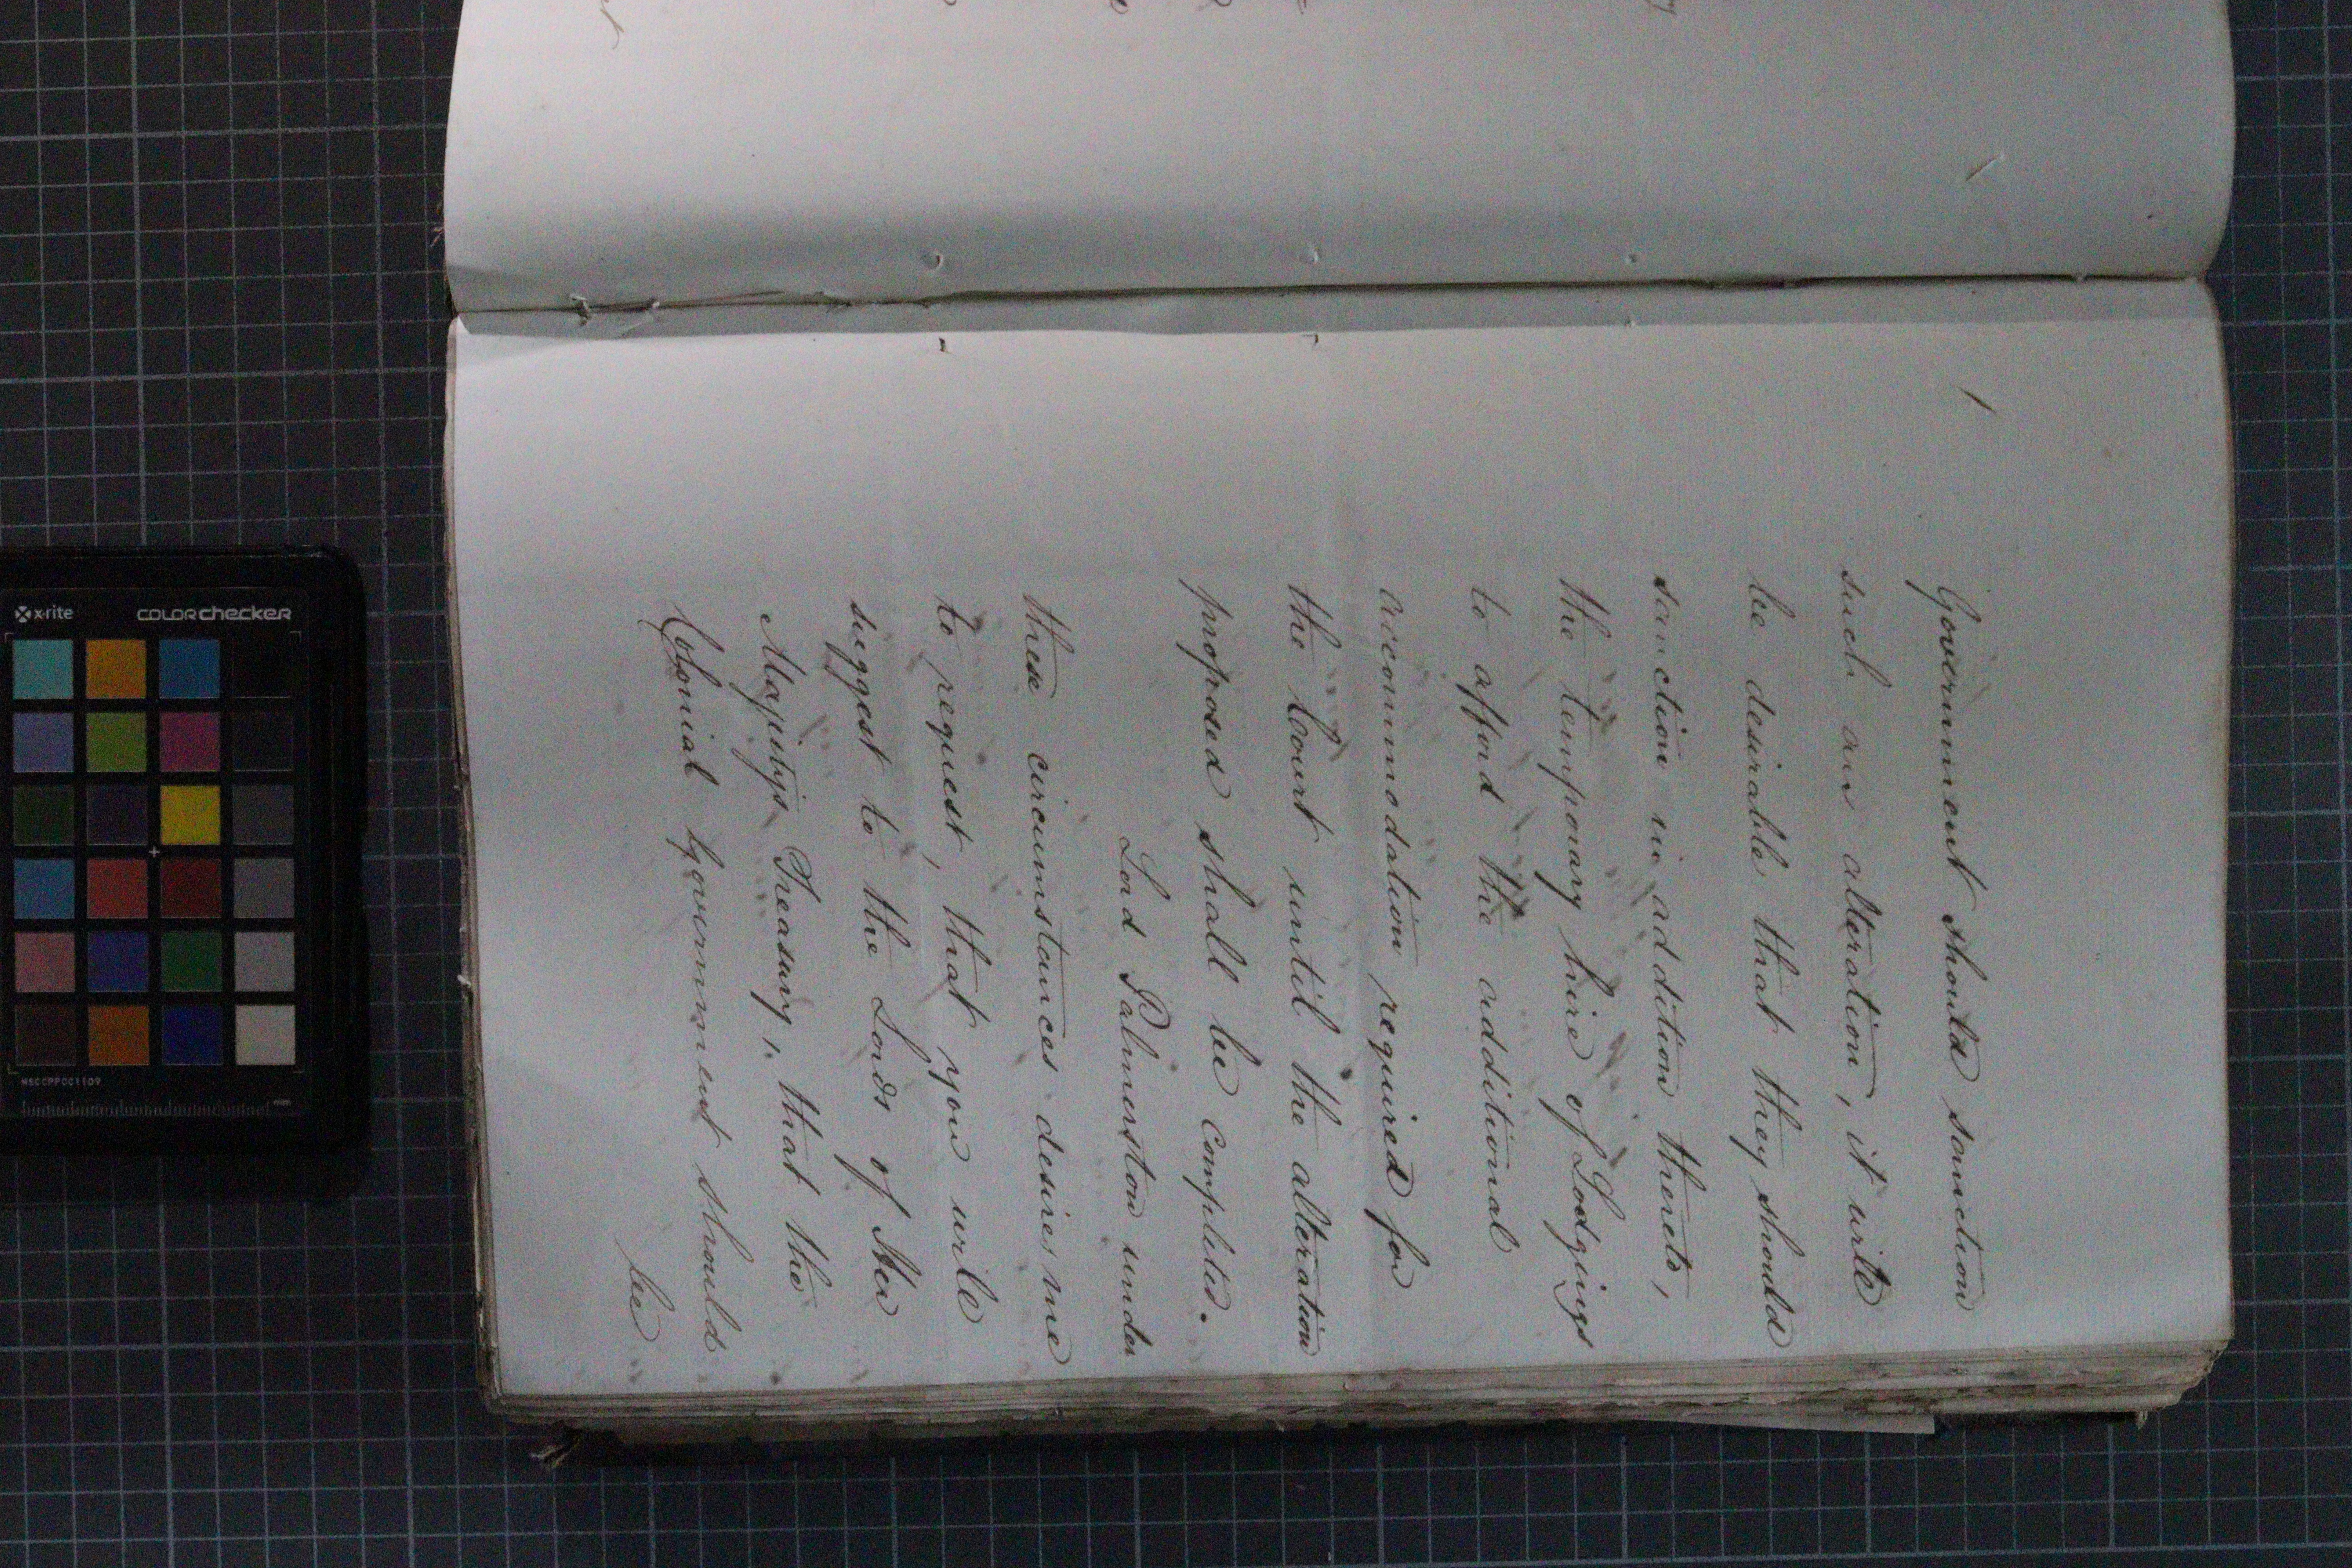 Government should sanction
such an alteration, it will
be desirable that they should
sanction in addition thereto,
the temporary hire of Lodgings
to afford the additional
accommodation required for
the Court until the alteration
proposed shall be completed.
Lord Palmerston under
these circumstances desires me
to request, that you will
suggest to the Lords of Her
Majesty's Treasury, that the
Colonial Government should
be
x-rite
colorchecker
MSCCPPCC1109
mm